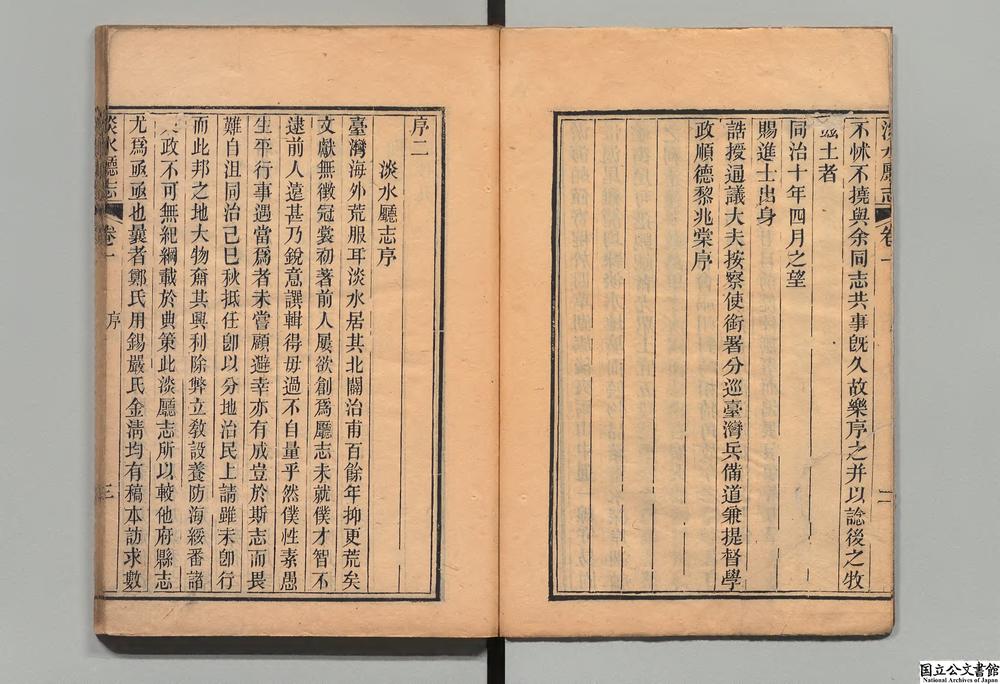 淡水廳志 卷一 二
不怵不撓與余同志共事旣久故樂序之并以諗後之牧
土者
同治十年四月之望
賜進士出身
誥授通議大夫按察使銜署分巡臺灣兵備道兼提督學
政順德黎兆棠序
序二
淡水廳志序
臺灣海外荒服耳淡水居其北闢治甫百餘年抑更荒矣
文獻無徵冠裳初著前人屢欲創爲廳志未就僕才智不
逮前人遠甚乃銳意譔輯得毋過不自量乎然僕性素愚
生平行事遇當爲者未嘗顧避幸亦有成豈於斯志而畏
難自沮同治己巳秋抵任卽以分地治民上請雖未卽行
而此邦之地大物奫其興利除弊立敎設養防海綏番諸
政不可無紀綱載於典策此淡廳志所以較他府縣志
尤爲亟亟也曩者鄭氏用錫嚴氏金淸均有稿本訪求數
淡水廳志 卷一 序 三
国立公文書館
National Archives of Japan